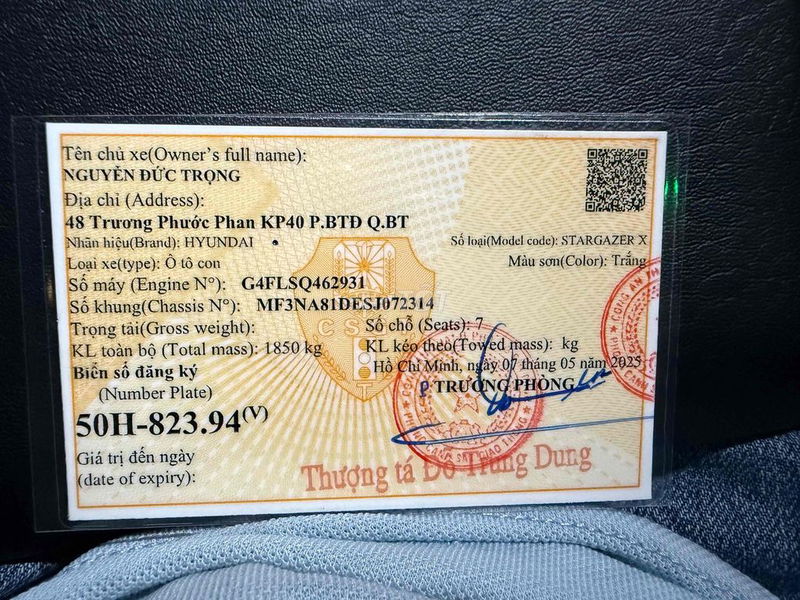 Tên chủ xe(Owner's full name):
NGUYỄN ĐỨC TRỌNG
Địa chỉ (Address):
48 Trương Phước Phan KP40 P.BTĐ Q.BT
Nhãn hiệu(Brand): HYUNDAI Số loại(Model code): STARGAZER X
Loại xe(type): Ô tô con Màu sơn(Color): Trắng
Số máy (Engine N°): G4FLSQ462931
Số khung(Chassis N°): MF3NA81DESJ072314
Trọng tải(Gross weight): Số chỗ (Seats): 7
KL toàn bộ (Total mass): 1850 kg KL kéo theo(Towed mass): kg
Hồ Chí Minh, ngày 07 tháng 05 năm 2025
Biển số đăng ký P TRƯỞNG PHÒNG
(Number Plate)
50H-823.94(V)
Giá trị đến ngày
(date of expiry):
Thượng tá Đỗ Trung Dung